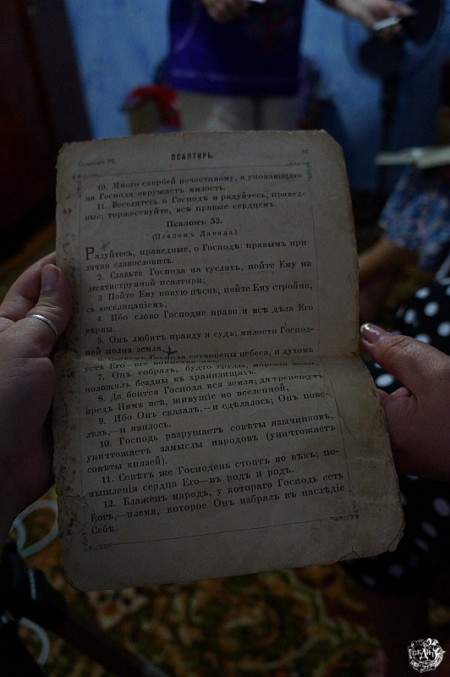 ПСАЛТИРЬ.
10. Много скорбей нечестивому, а уповающаго
на Господа окружаетъ милость.
11. Веселитесь о Господѣ и радуйтесь, правед-
ные; торжествуйте, всѣ правые сердцемъ.
Псаломъ 32.
(Псаломъ Давида)
Радуйтесь, праведные, о Господѣ: правымъ при-
лично славословить.
2. Славьте Господа на гусляхъ, пойте Ему на
десятиструнной псалтири;
3 Пойте Ему новую пѣснь; пойте Ему стройно,
съ восклицаніемъ,
4. Ибо слово Господне право и всѣ дѣла Его
вѣрны.
5. Онъ любитъ правду и судъ; милости Господ-
ней полна земля.
6. Словомъ Господа сотворены небеса, и духомъ
устъ Его—все воинство
7. Онъ собралъ, будто груды, морскія воды,
положилъ бездны въ хранилищахъ.
8. Да боится Господа вся земля; да трепещутъ
предъ Нимъ всѣ, живущіе во вселенной,
9. Ибо Онъ сказалъ,—и сдѣлалось; Онъ пове-
лѣлъ,—и явилось.
10. Господь разрушаетъ совѣты язычниковъ,
уничтожаетъ замыслы народовъ (уничтожаетъ
совѣты князей).
11. Совѣтъ же Господень стоитъ во вѣкъ; по-
мышленія сердца Его—въ родъ и родъ.
12. Блаженъ народъ, у котораго Господь есть
Богъ,—племя, которое Онъ избралъ въ наслѣдіе
Себѣ.